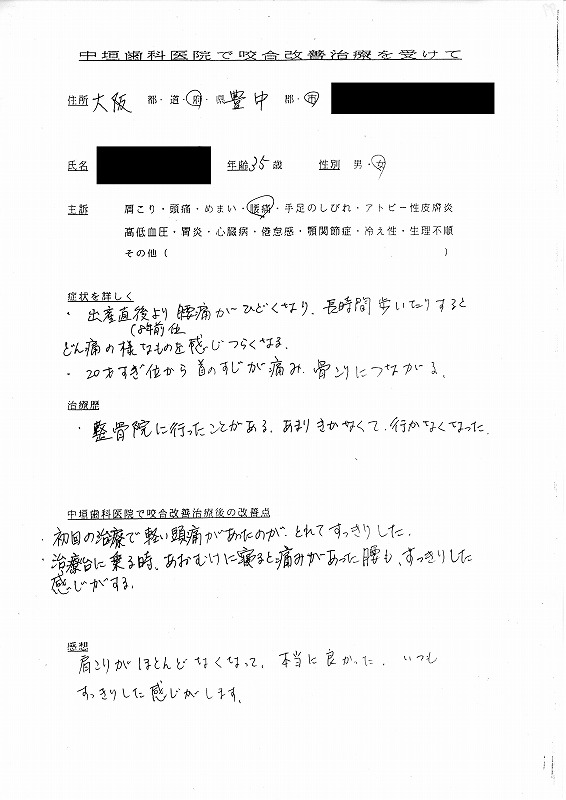 中垣歯科医院で咬合改善治療を受けて
住所 大阪 都・道・府・県 豊中 郡・市
氏名 年齢 35 歳 性別 男・女
主訴 肩こり・頭痛・めまい・腰痛・手足のしびれ・アトピー性皮膚炎
高低血圧・胃炎・心臓病・倦怠感・顎関節症・冷え性・生理不順
その他( )
症状を詳しく
・出産直後より腰痛がひどくなり、長時間歩いたりすると
(8年前位
どん痛の様なものを感じつらくなる。
・20才すぎ位から首のすじが痛み、骨こりにつながる。
治療歴
・整骨院に行ったことがある。あまりきかなくて、行かなくなった。
中垣歯科医院で咬合改善治療後の改善点
・初回の治療で軽い頭痛があったのが、とれてすっきりした。
・治療台に乗る時、あおむけに寝ると痛みがあった腰も、すっきりした
感じがする。
感想
肩こりがほとんどなくなって、本当に良かった。いつも
すっきりした感じがします。